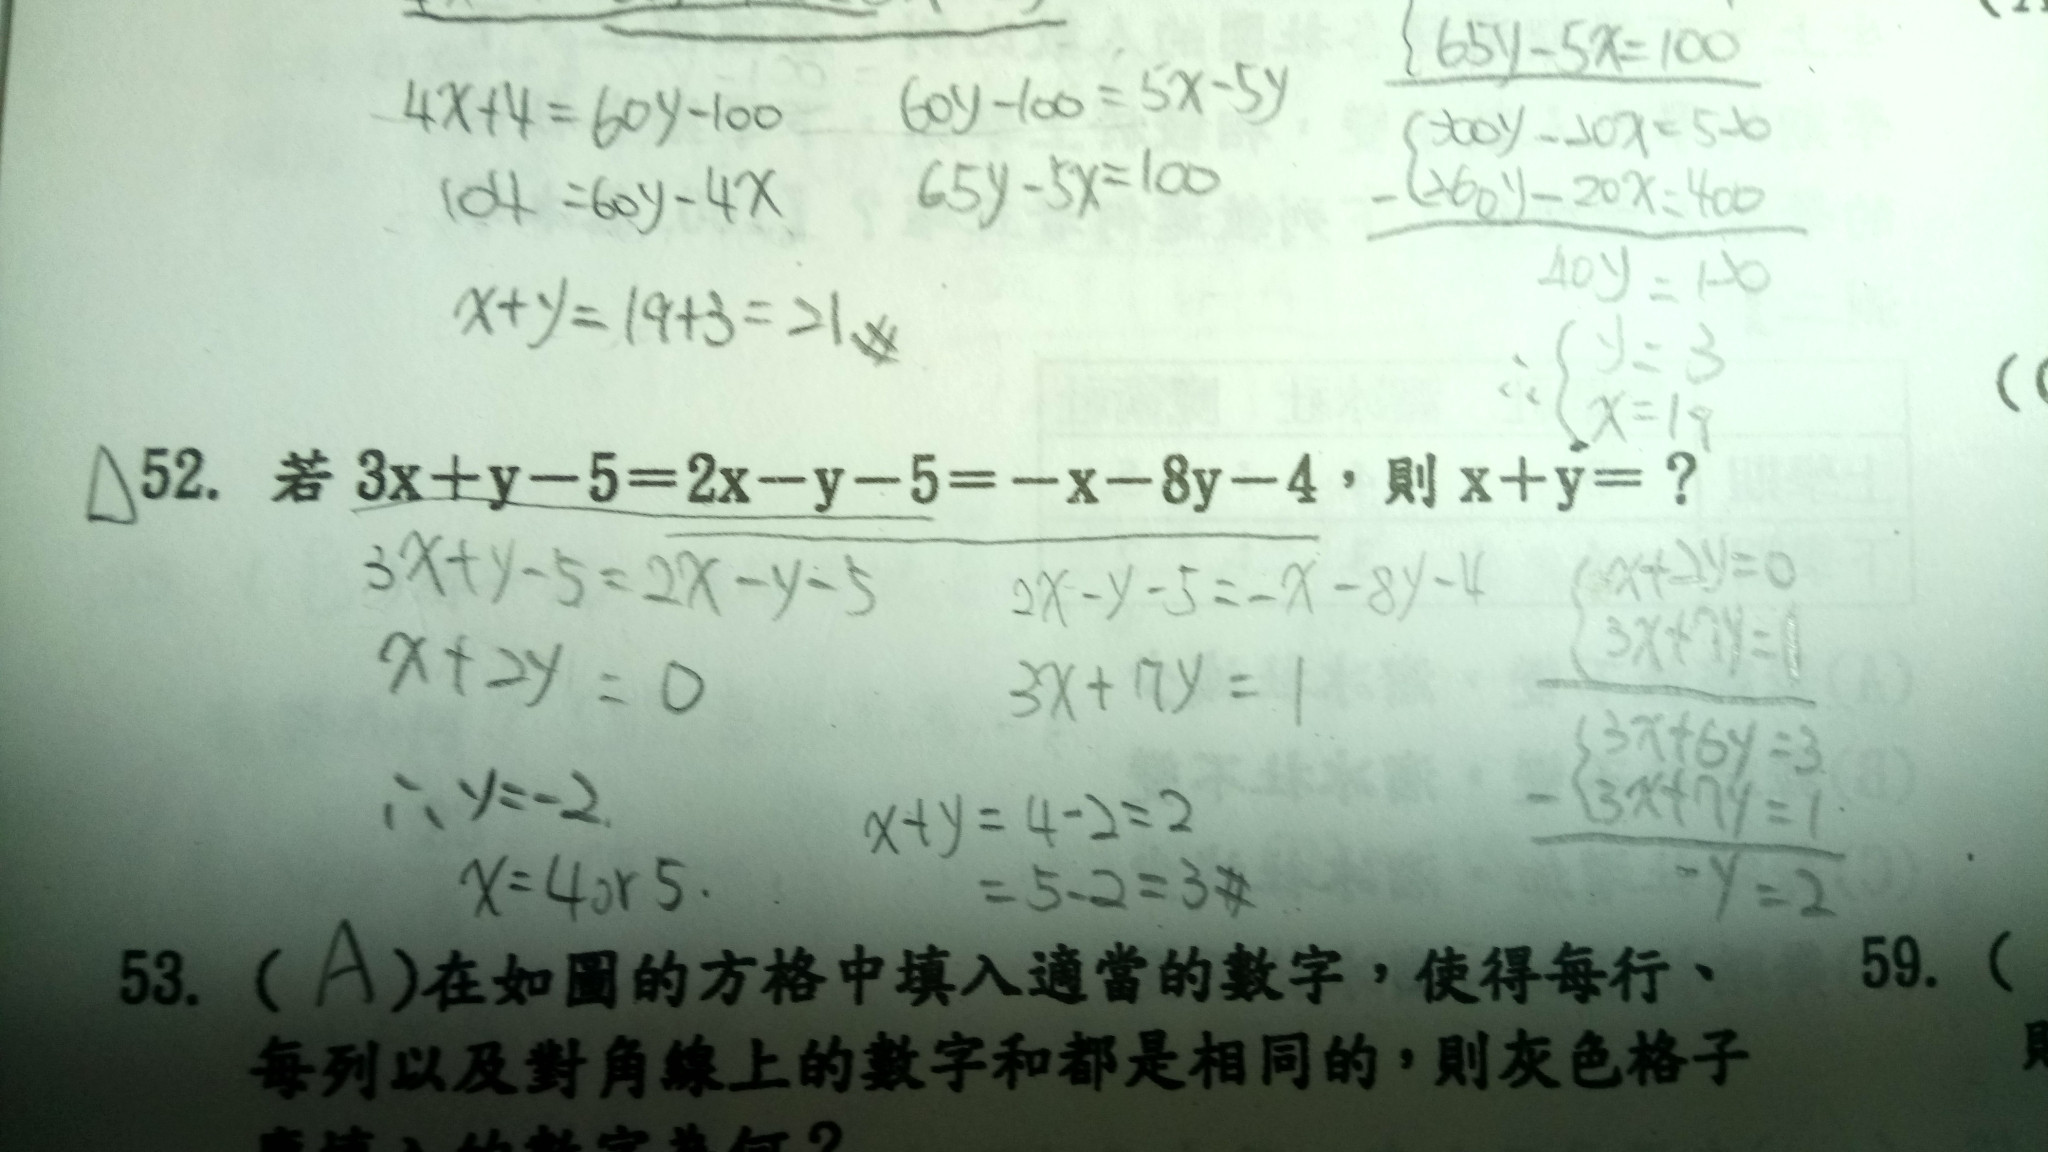 4x+4=60y-100
60y-100=5x-5y
104=60y-4x
65y-5x=100
x+y=19+3=21
65y-5x=100
300y-20x=520
-260y-20x=400
40y=120
∴ y=3
x=19
52. 若 3x+y-5=2x-y-5=-x-8y-4，則 x+y=？
3x+y-5=2x-y-5
2x-y-5=-x-8y-4
x+2y=0
3x+7y=1
x+2y=0
3x+7y=1
3x+6y=3
-3x+7y=1
-y=2
∴ y=-2
x=4or5.
x+y=4-2=2
=5-2=3
53. (A)在如圖的方格中填入適當的數字，使得每行、
每列以及對角線上的數字和都是相同的，則灰色格子
59. (